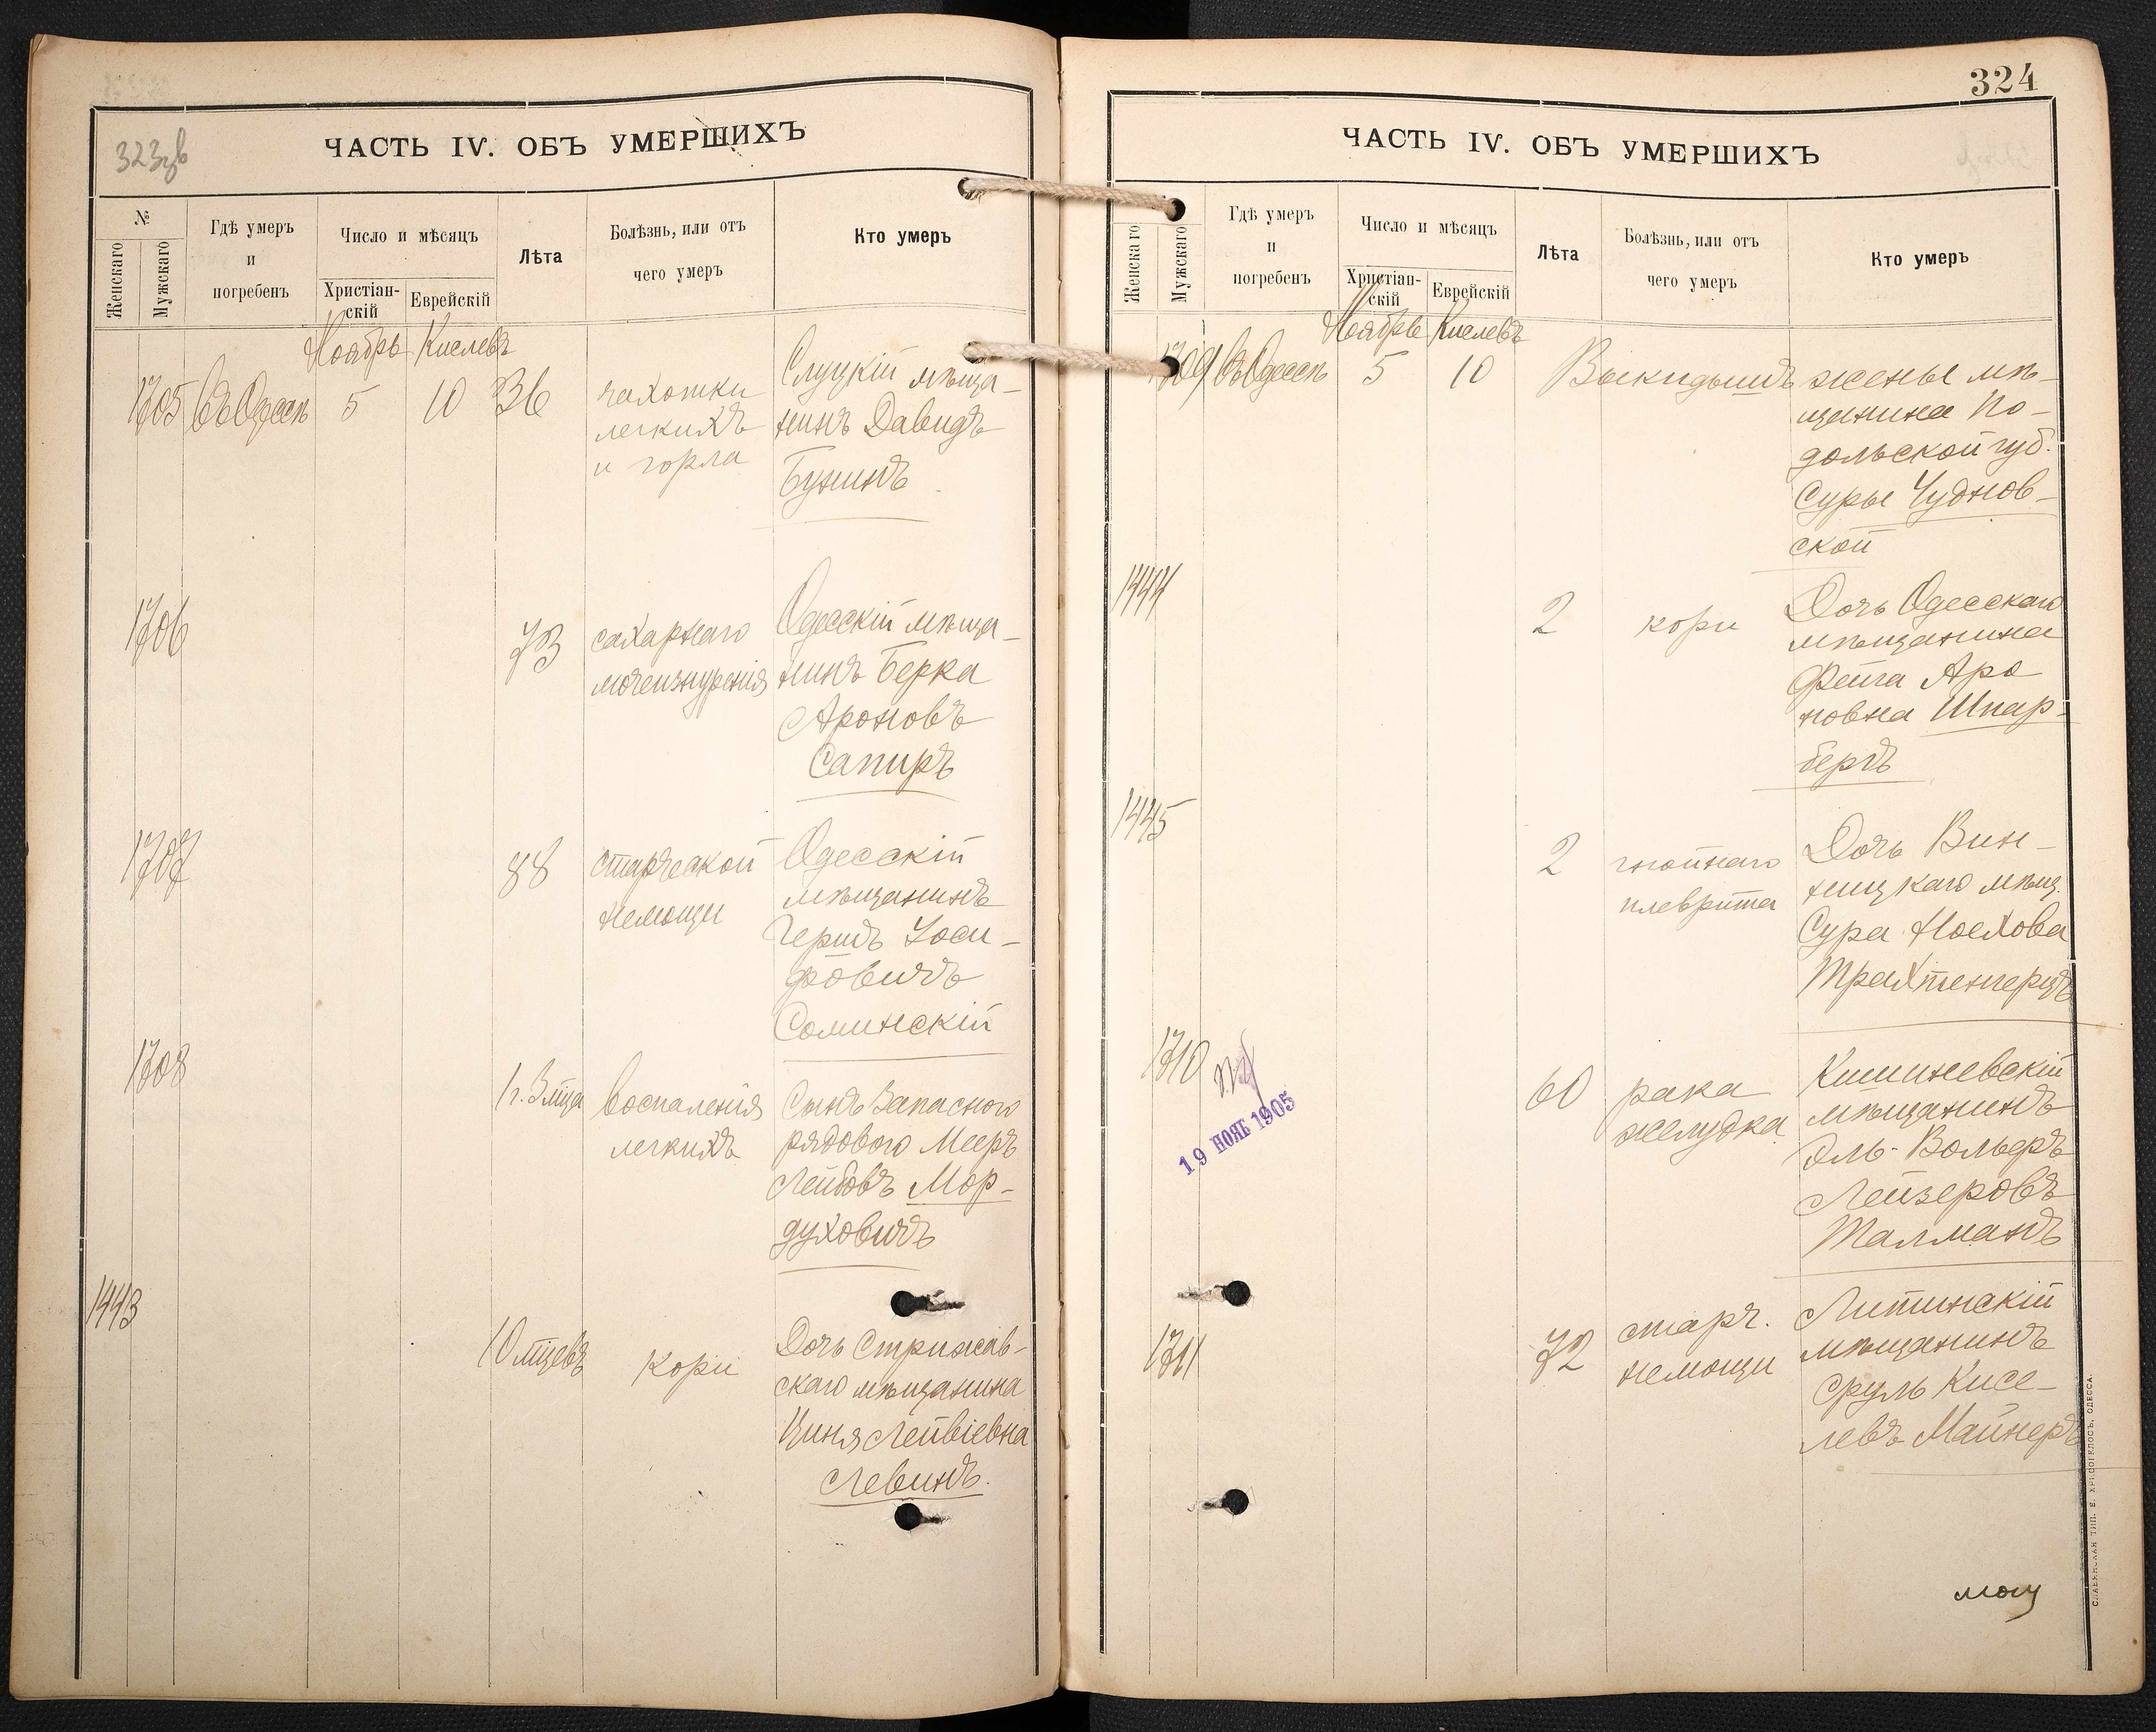 323зв
ЧАСТЬ IV. ОБЪ УМЕРШИХЪ
№
Женскаго
Мужскаго
Гдѣ умеръ
и
погребенъ
Число и мѣсяцъ
Христіан-
скій
Еврейскій
Лѣта
Болѣзнь, или отъ
чего умеръ
Кто умеръ
Ноябрь Кислевъ
1705 Въ Одессѣ 5 10 36
чахотки
легкихъ
и горла
Слуцкій мѣща-
нинъ Давидъ
Бунинъ
1706
73
сахарнаго
мочеизнуренія
Одесскій мѣща-
нинъ Берка
Ароновъ
Сапиръ
1707
88
старческой
немощи
Одесскій
мѣщанинъ
Гершъ Іоси-
фовичъ
Соминскій
1708
1 г. 3 мца
воспаленія
легкихъ
Сынъ Запасного
рядового Мееръ
Лейбовъ Мор-
духовичъ
1443
10 мцевъ
кори
Дочь Стрижав-
скаго мѣщанина
Циня Лейвіевна
Левинъ.
324
ЧАСТЬ IV. ОБЪ УМЕРШИХЪ
Женскаго
Мужскаго
Гдѣ умеръ
и
погребенъ
Число и мѣсяцъ
Христіан-
скій
Еврейскій
Лѣта
Болѣзнь, или отъ
чего умеръ
Кто умеръ
Ноябрь Кислевъ
1709 Въ Одессѣ 5 10
Выкидышъ жены мѣ-
щанина По-
дольской губ.
Суры Чуднов-
ской
1444
2
кори
Дочь Одесскаго
мѣщанина
Фейга Аро
новна Шпар-
бергъ
1445
2
гнойнаго
плеврита
Дочь Вин-
ницкаго мѣщ.
Сура Ноехова
Трахтенгерцъ
1710
19 НОЯБ 1905
60
рака
желудка
Кишиневскій
мѣщанинъ
Эль-Вольфъ
Лейзеровъ
Талманъ
1711
72
старч.
немощи
Литинскій
мѣщанинъ
Сруль Кисе-
левъ Майнеръ
СЛАВЯНСКАЯ ТИП. Е. ХРИСОГЕЛОСЪ, ОДЕССА.